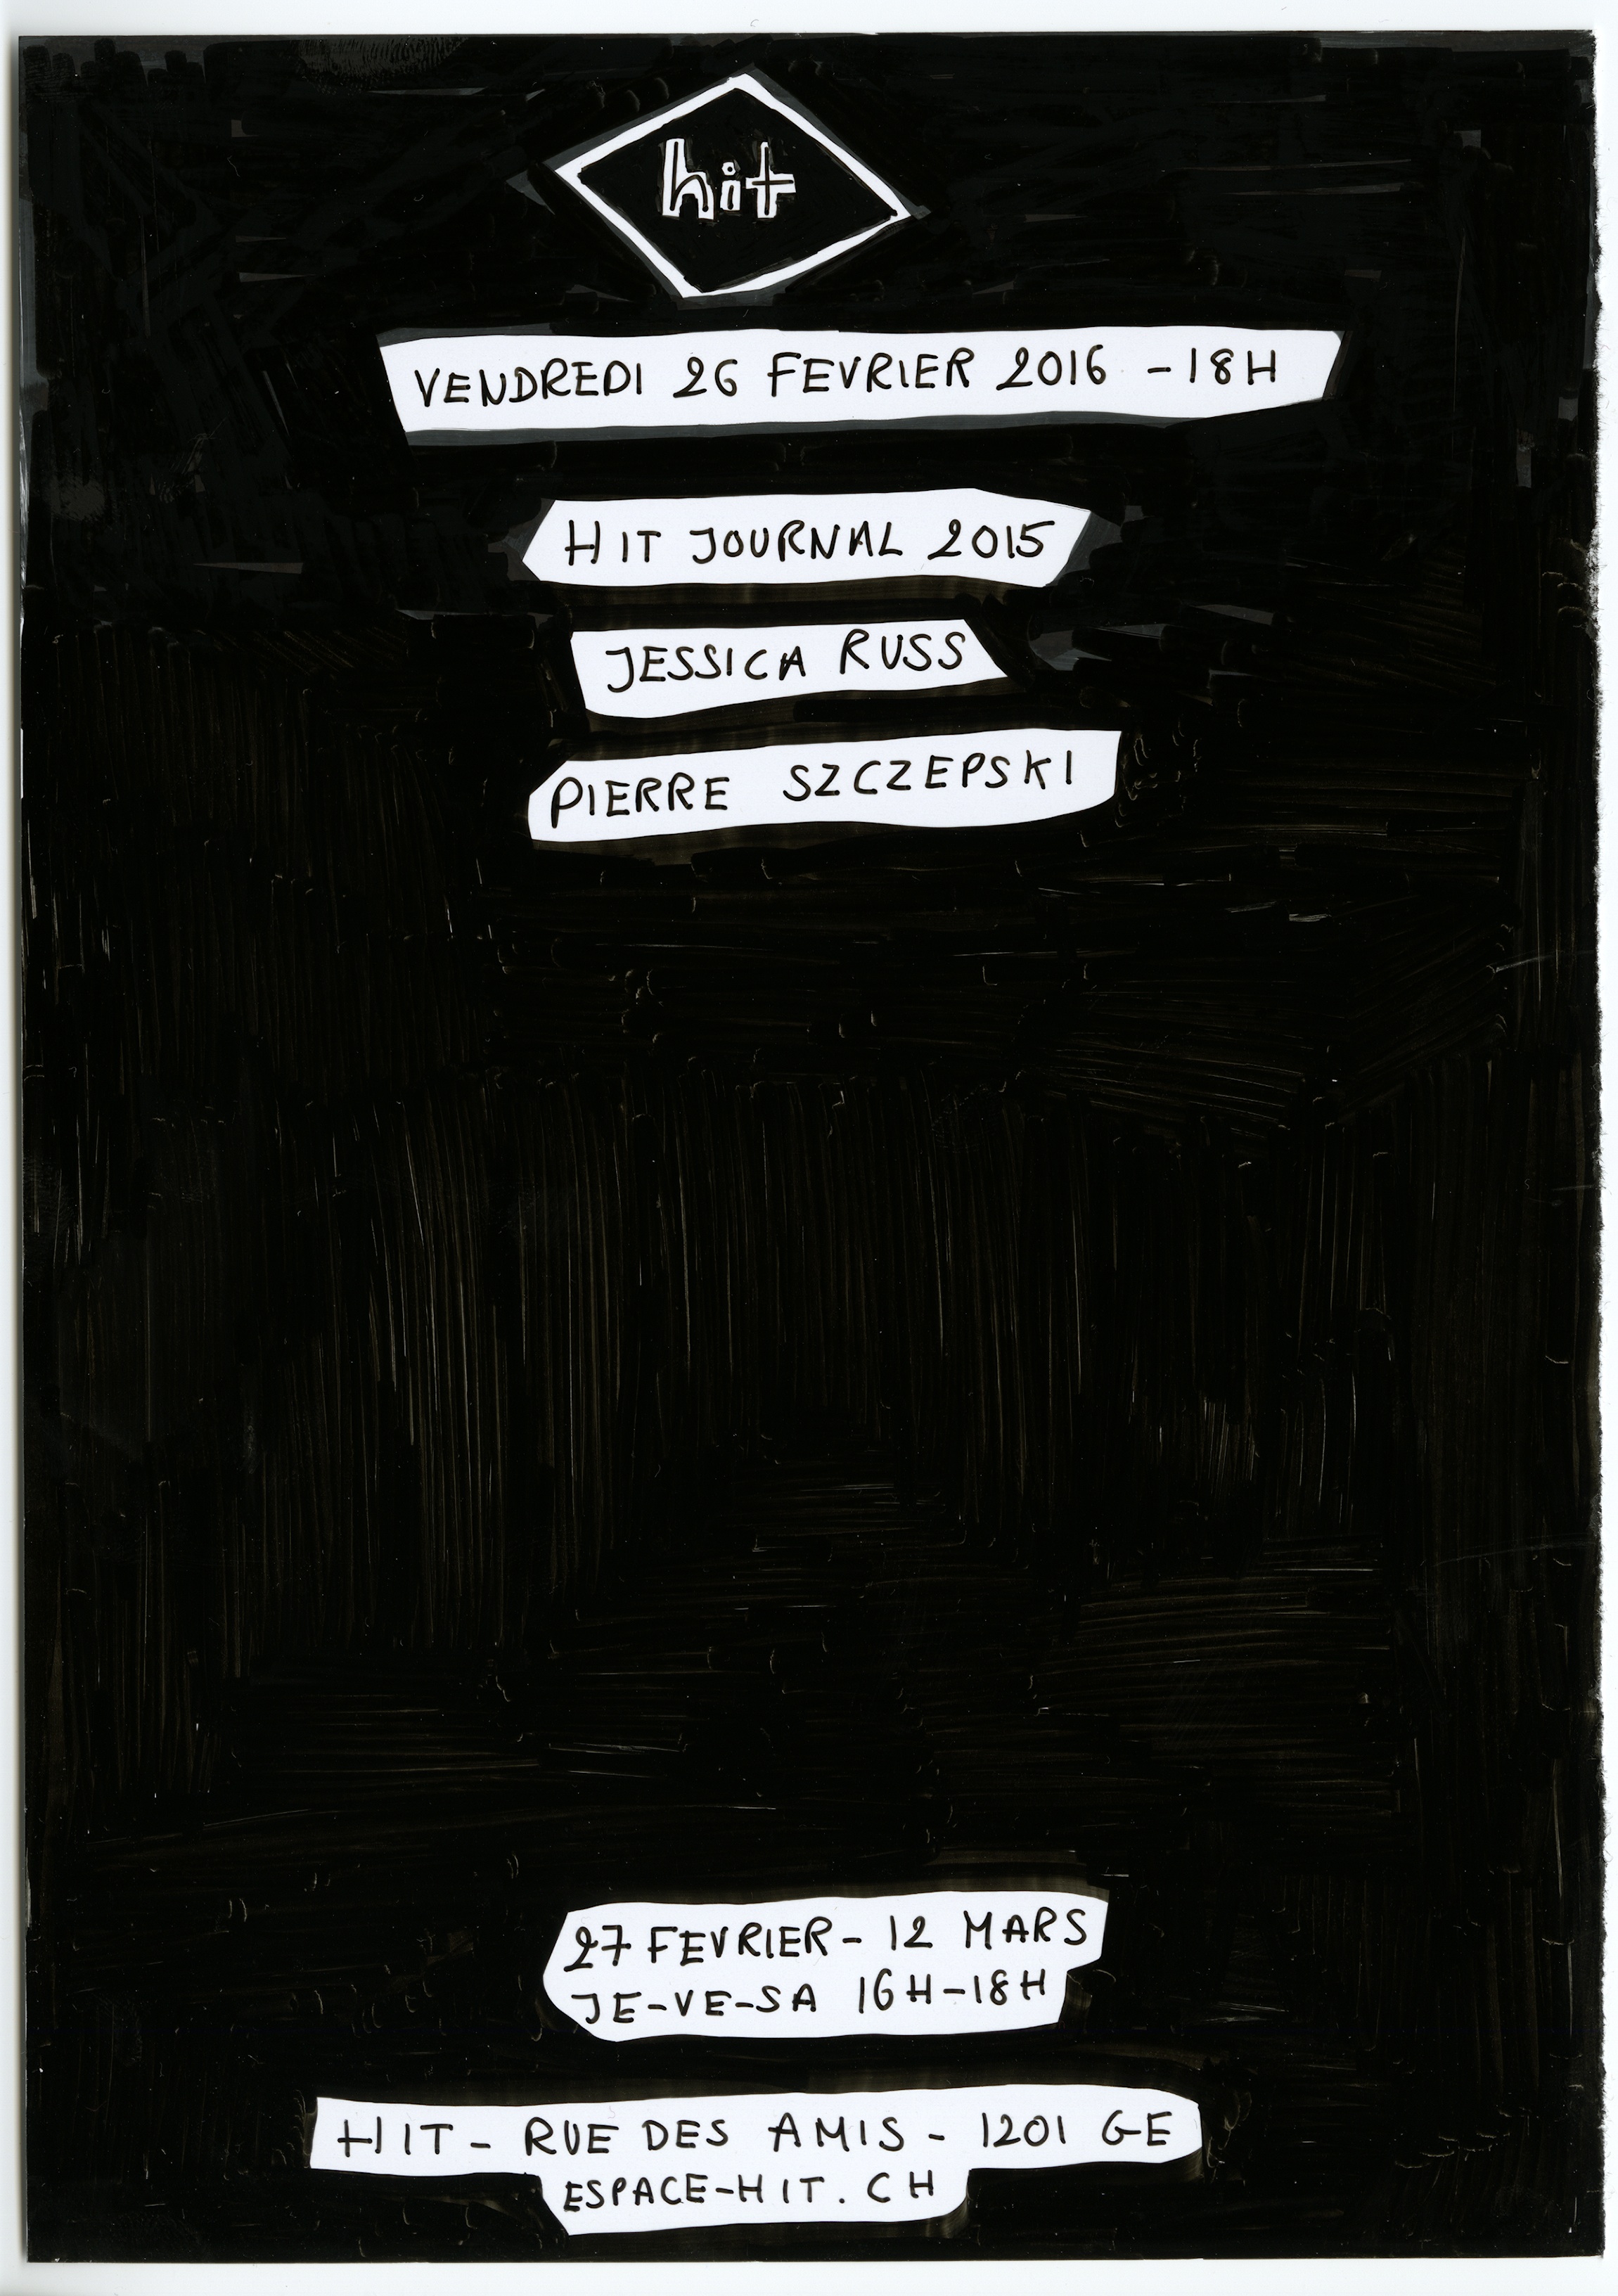 hit
VENDREDI 26 FEVRIER 2016 - 18H
HIT JOURNAL 2015
JESSICA RUSS
PIERRE SZCZEPSKI
27 FEVRIER - 12 MARS
JE-VE-SA 16H-18H
HIT - RUE DES AMIS - 1201 GE
ESPACE-HIT.CH